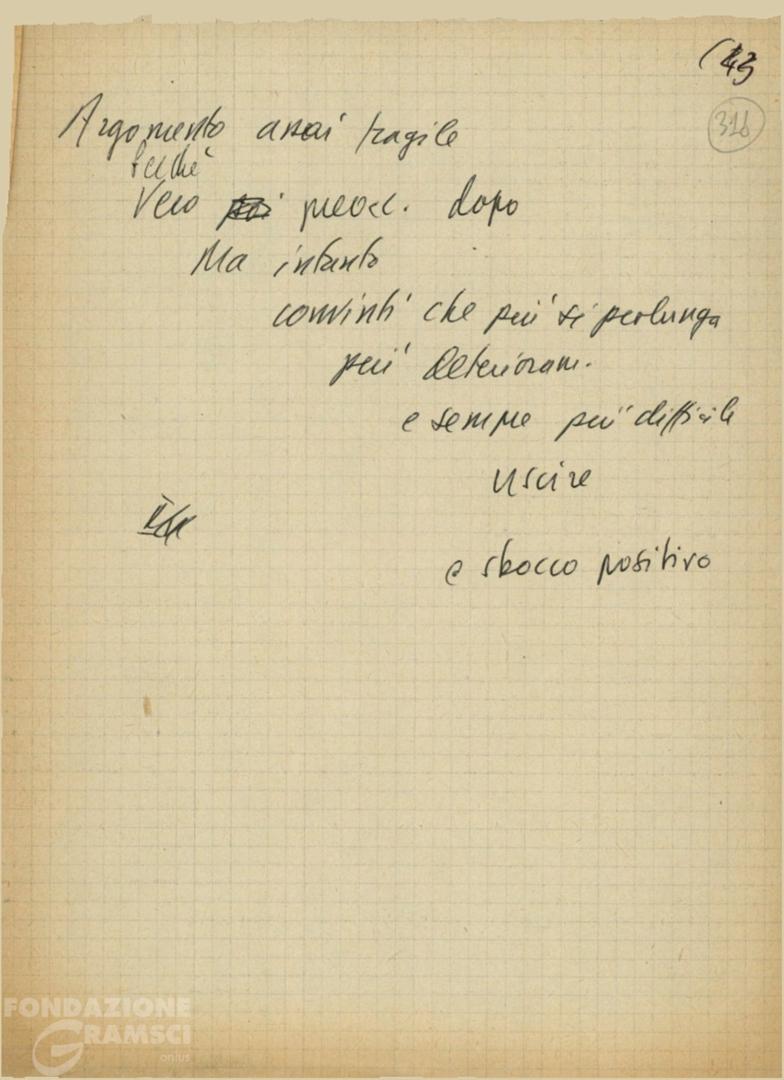 (43
316
Argomento assai fragile
Perché
Vero preocc. dopo
Ma intanto
convinti che più si prolunga
più deterioram.
e sempre più difficile
uscire
e sbocco positivo
FONDAZIONE
GRAMSCI
onlus